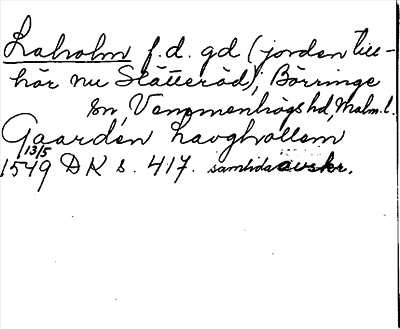 Laholm f.d. gd (jorden till-
hör nu Slätteröd), Börringe
sn, Vemmenhögs hd, Malm. l.
Gaarden Laogholleem
13/5
1549 DK s. 417. samtida avskr.